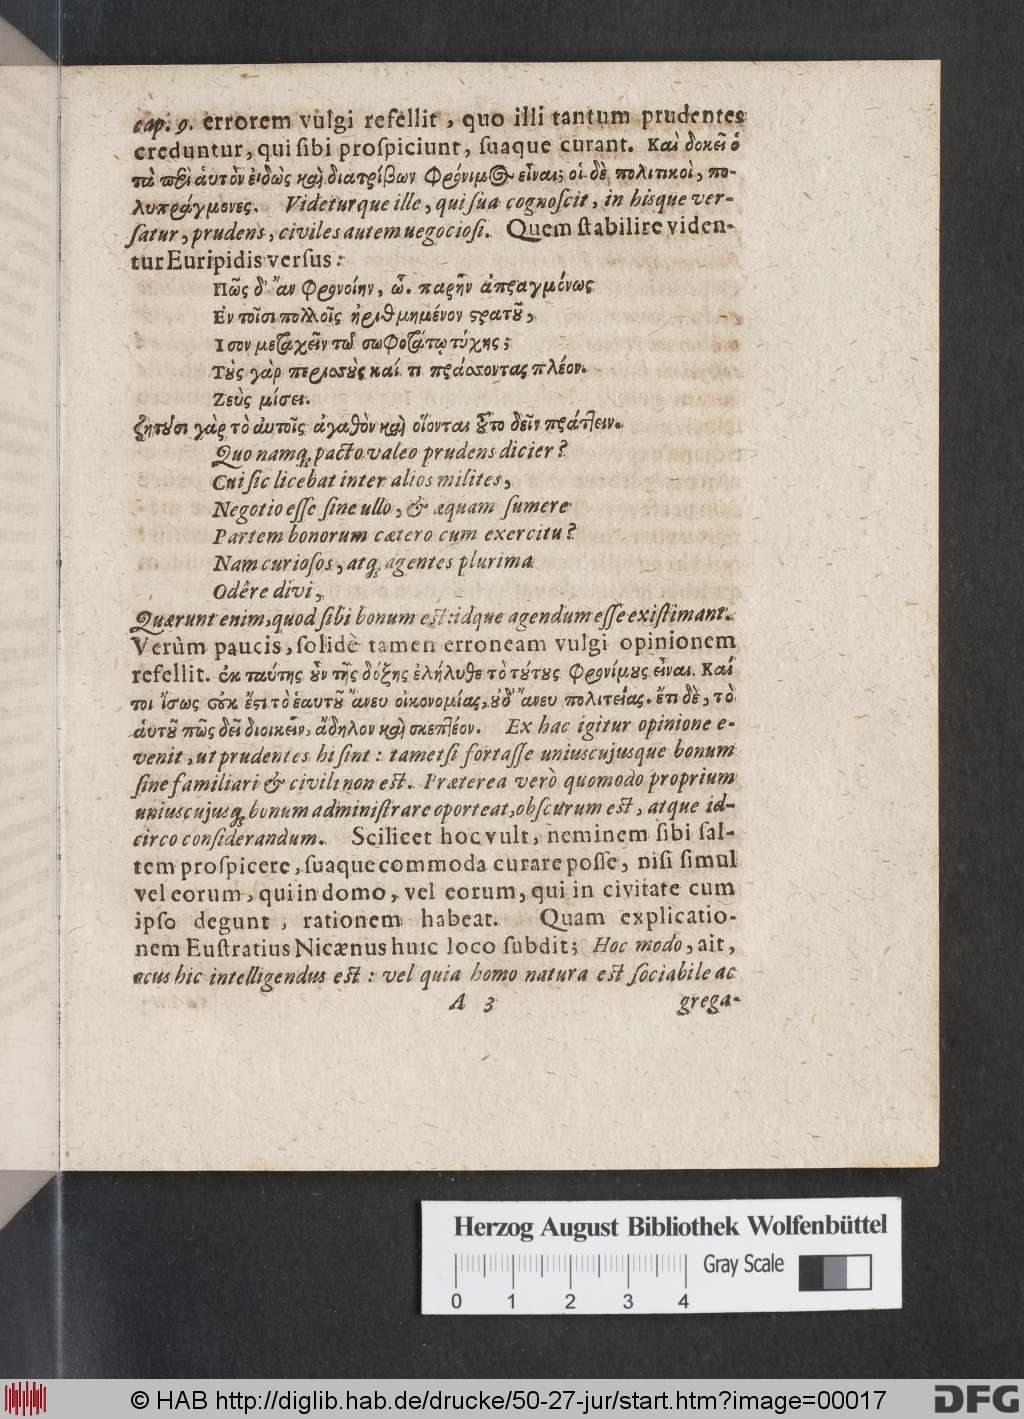 cap. 9. errorem vulgi refellit, quo illi tantum prudentes
creduntur, qui sibi prospiciunt, suaque curant. Καὶ δοκεῖ ὁ
τὰ περὶ ἁυτὸν ἐιδὼς καὶ διατρίβων Φρόνιμος εἶναι; οἱ δὲ πολιτικοὶ, πο-
λυπράγμονες. Videturque ille, qui sua cognoscit, in hisque ver-
satur, prudens, civiles autem uegociosi. Quem stabilire viden-
tur Euripidis versus:
Πῶς δ' ἂν Φρονοίην, ὧ. παρῆν ἀπραγμόνως
Ἐν τοῖσι πολλοῖς ἠριθμημένον στρατοῦ,
Ισον μετασχεῖν τῶ σωφοτάτῳ τύχης;
Τοὺς γὰρ περισσοὺς καί τι πράσσοντας πλέον.
Ζεὺς μίσει.
ζητοῦσι γὰρ τὸ ἀυτοῖς ἀγαθὸν καὶ οἴονται οῦτο δεῖν πράττειν.
Quo namq; pacto valeo prudens dicier?
Cui sic licebat inter alios milites,
Negotio esse sine ullo, & æquam sumere
Partem bonorum cætero cum exercitu?
Nam curiosos, atq; agentes plurima
Odêre divi,
Quærunt enim, quod sibi bonum est: idque agendum esse existimant.
Verùm paucis, solidè tamen erroneam vulgi opinionem
refellit. ἐκ ταύτης οὖν τῆς δόξης ἐλήλυθε τὸ τούτους Φρονίμους εἶναι. Καί
τοι ἴσως οὐκ ἔστι τὸ ἑαυτοῦ ἄνευ οἰκονομίας, οὐδ' ἄνευ πολιτείας. ἔτι δὲ, τὸ
ἁυτοῦ πῶς δεῖ διοικεῖν, ἄδηλον καὶ σκεπτέον. Ex hac igitur opinione e-
venit, ut prudentes hi sint: tametsi fortasse uniuscujusque bonum
sine familiari & civili non est. Præterea verò quomodo proprium
uniuscujusq; bonum administrare oporteat, obscurum est, atque id-
circo considerandum. Scilicet hoc vult, neminem sibi sal-
tem prospicere, suaque commoda curare posse, nisi simul
vel eorum, qui in domo, vel eorum, qui in civitate cum
ipso degunt, rationem habeat. Quam explicatio-
nem Eustratius Nicænus huic loco subdit; Hoc modo, ait,
ocus hic intelligendus est: vel quia homo natura est sociabile ac
A 3 grega-
Herzog August Bibliothek Wolfenbüttel
Gray Scale
0 1 2 3 4
© HAB http://diglib.hab.de/drucke/50-27-jur/start.htm?image=00017
DFG